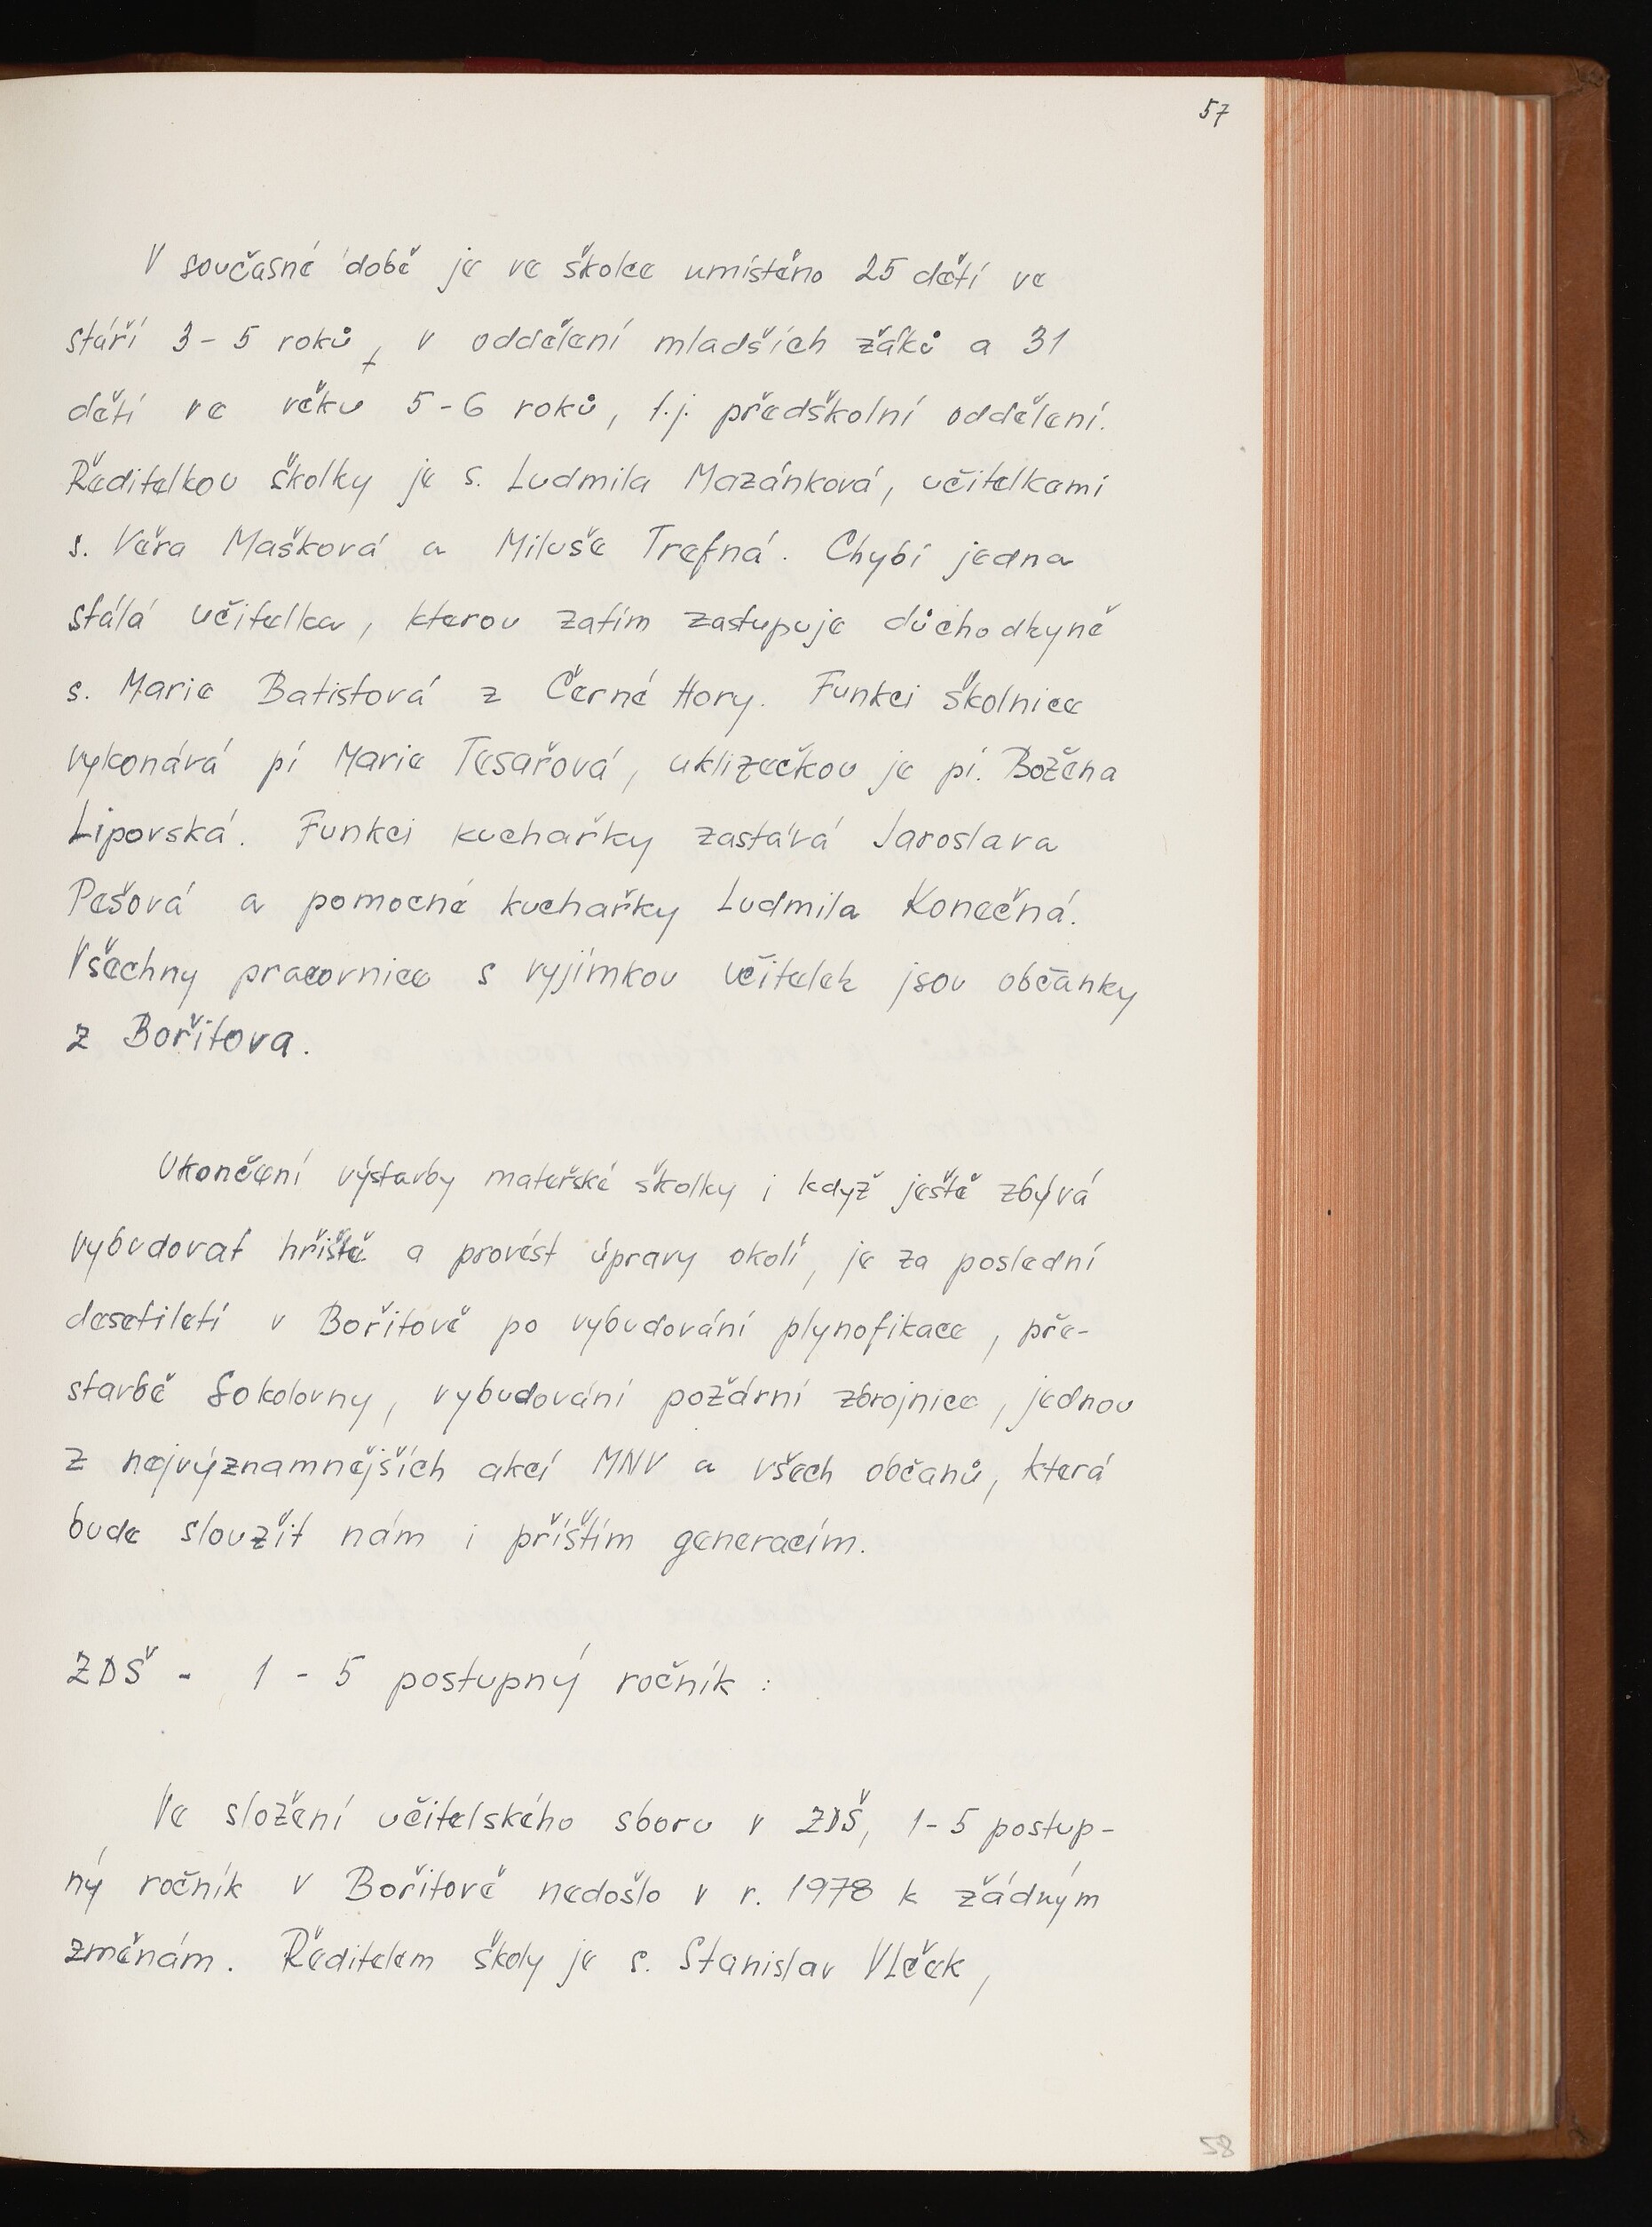 57
V současné době je ve školce umístěno 25 dětí ve
stáří 3-5 roků, v oddělení mladších žáků a 31
dětí ve věku 5-6 roků, t.j. předškolní oddělení.
Ředitelkou školky je s. Ludmila Mazánková, učitelkami
s. Věra Mašková a Miluše Trefná. Chybí jedna
stálá učitelka, kterou zatím zastupuje důchodkyně
s. Marie Batistová z Černé Hory. Funkci školnice
vykonává pí Marie Tesařová, uklizečkou je pí. Božena
Lipovská. Funkci kuchařky zastává Jaroslava
Pešová a pomocné kuchařky Ludmila Konečná.
Všechny pracovnice s vyjímkou učitelek jsou občanky
z Bořitova.
Ukončení výstavby mateřské školky i když ještě zbývá
vybudovat hřiště a provést úpravy okolí, je za poslední
desetiletí v Bořitově po vybudování plynofikace, pře-
starbě Sokolovny, vybudování požární zbrojnice, jednou
z nejvýznamnějších akcí MNV a všech občanů, která
bude sloužit nám i příštím generacím.
ZDŠ - 1 - 5 postupný ročník :
Ve složení učitelského sboru v ZDŠ, 1-5 postup-
ný ročník v Bořitově nedošlo v r. 1978 k žádným
změnám. Ředitelem školy je s. Stanislav Vlček,
58